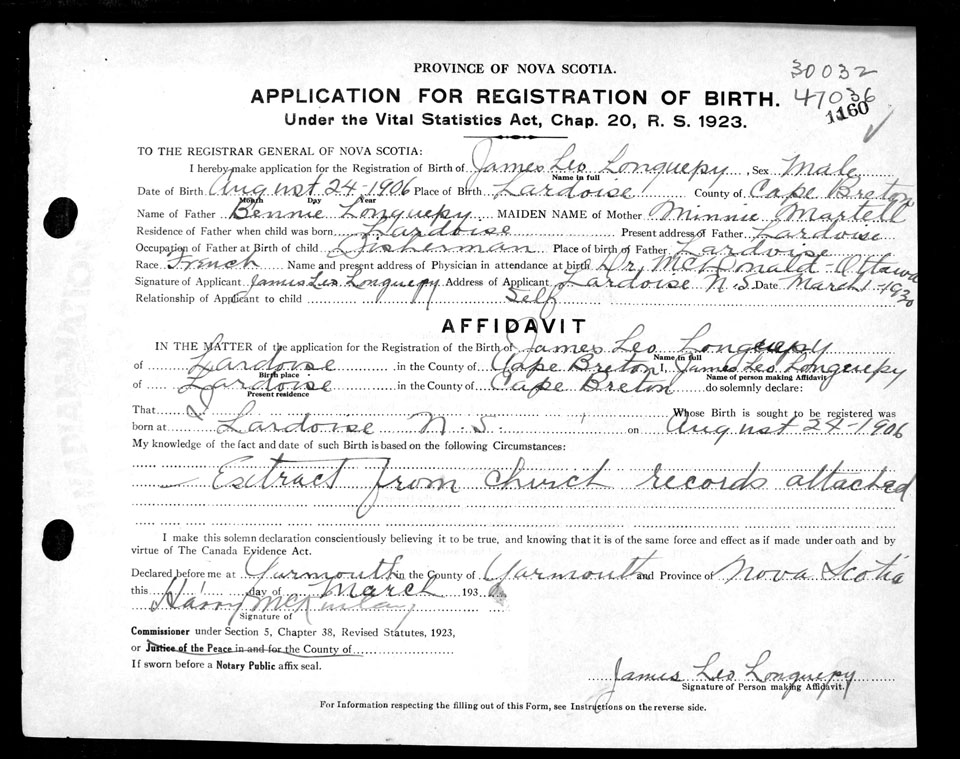 PROVINCE OF NOVA SCOTIA.
30032
APPLICATION FOR REGISTRATION OF BIRTH.
47036
Under the Vital Statistics Act, Chap. 20, R. S. 1923.
1160
TO THE REGISTRAR GENERAL OF NOVA SCOTIA:
I hereby make application for the Registration of Birth of James Leo Longuepy Sex Male
Name in full
Date of Birth August 24-1906 Place of Birth Lardoise County of Cape Breton
Month Day Year
Name of Father Bennie Longuepy MAIDEN NAME of Mother Minnie Martell
Residence of Father when child was born Lardoise Present address of Father Lardoise
Occupation of Father at Birth of child Fisherman Place of birth of Father Lardoise
Race French Name and present address of Physician in attendance at birth Dr. McDonald-Ottawa
Signature of Applicant James Leo Longuepy Address of Applicant Lardoise N.S. Date March 1-1930
Relationship of Applicant to child Self
AFFIDAVIT
IN THE MATTER of the application for the Registration of the Birth of James Leo Longuepy
Name in full
of Lardoise in the County of Cape Breton I, James Leo Longuepy
Birth place Name of person making Affidavit
of Lardoise in the County of Cape Breton do solemnly declare:
Present residence
That I Whose Birth is sought to be registered was
born at Lardoise N.S. on August 24-1906
My knowledge of the fact and date of such Birth is based on the following Circumstances:
Extract from church records attached
I make this solemn declaration conscientiously believing it to be true, and knowing that it is of the same force and effect as if made under oath and by
virtue of The Canada Evidence Act.
Declared before me at Yarmouth in the County of Yarmouth and Province of Nova Scotia
this day of March 1930
Harry McKinlay
Signature of
Commissioner under Section 5, Chapter 38, Revised Statutes, 1923,
or Justice of the Peace in and for the County of
If sworn before a Notary Public affix seal.
James Leo Longuepy
Signature of Person making Affidavit.
For Information respecting the filling out of this Form, see Instructions on the reverse side.